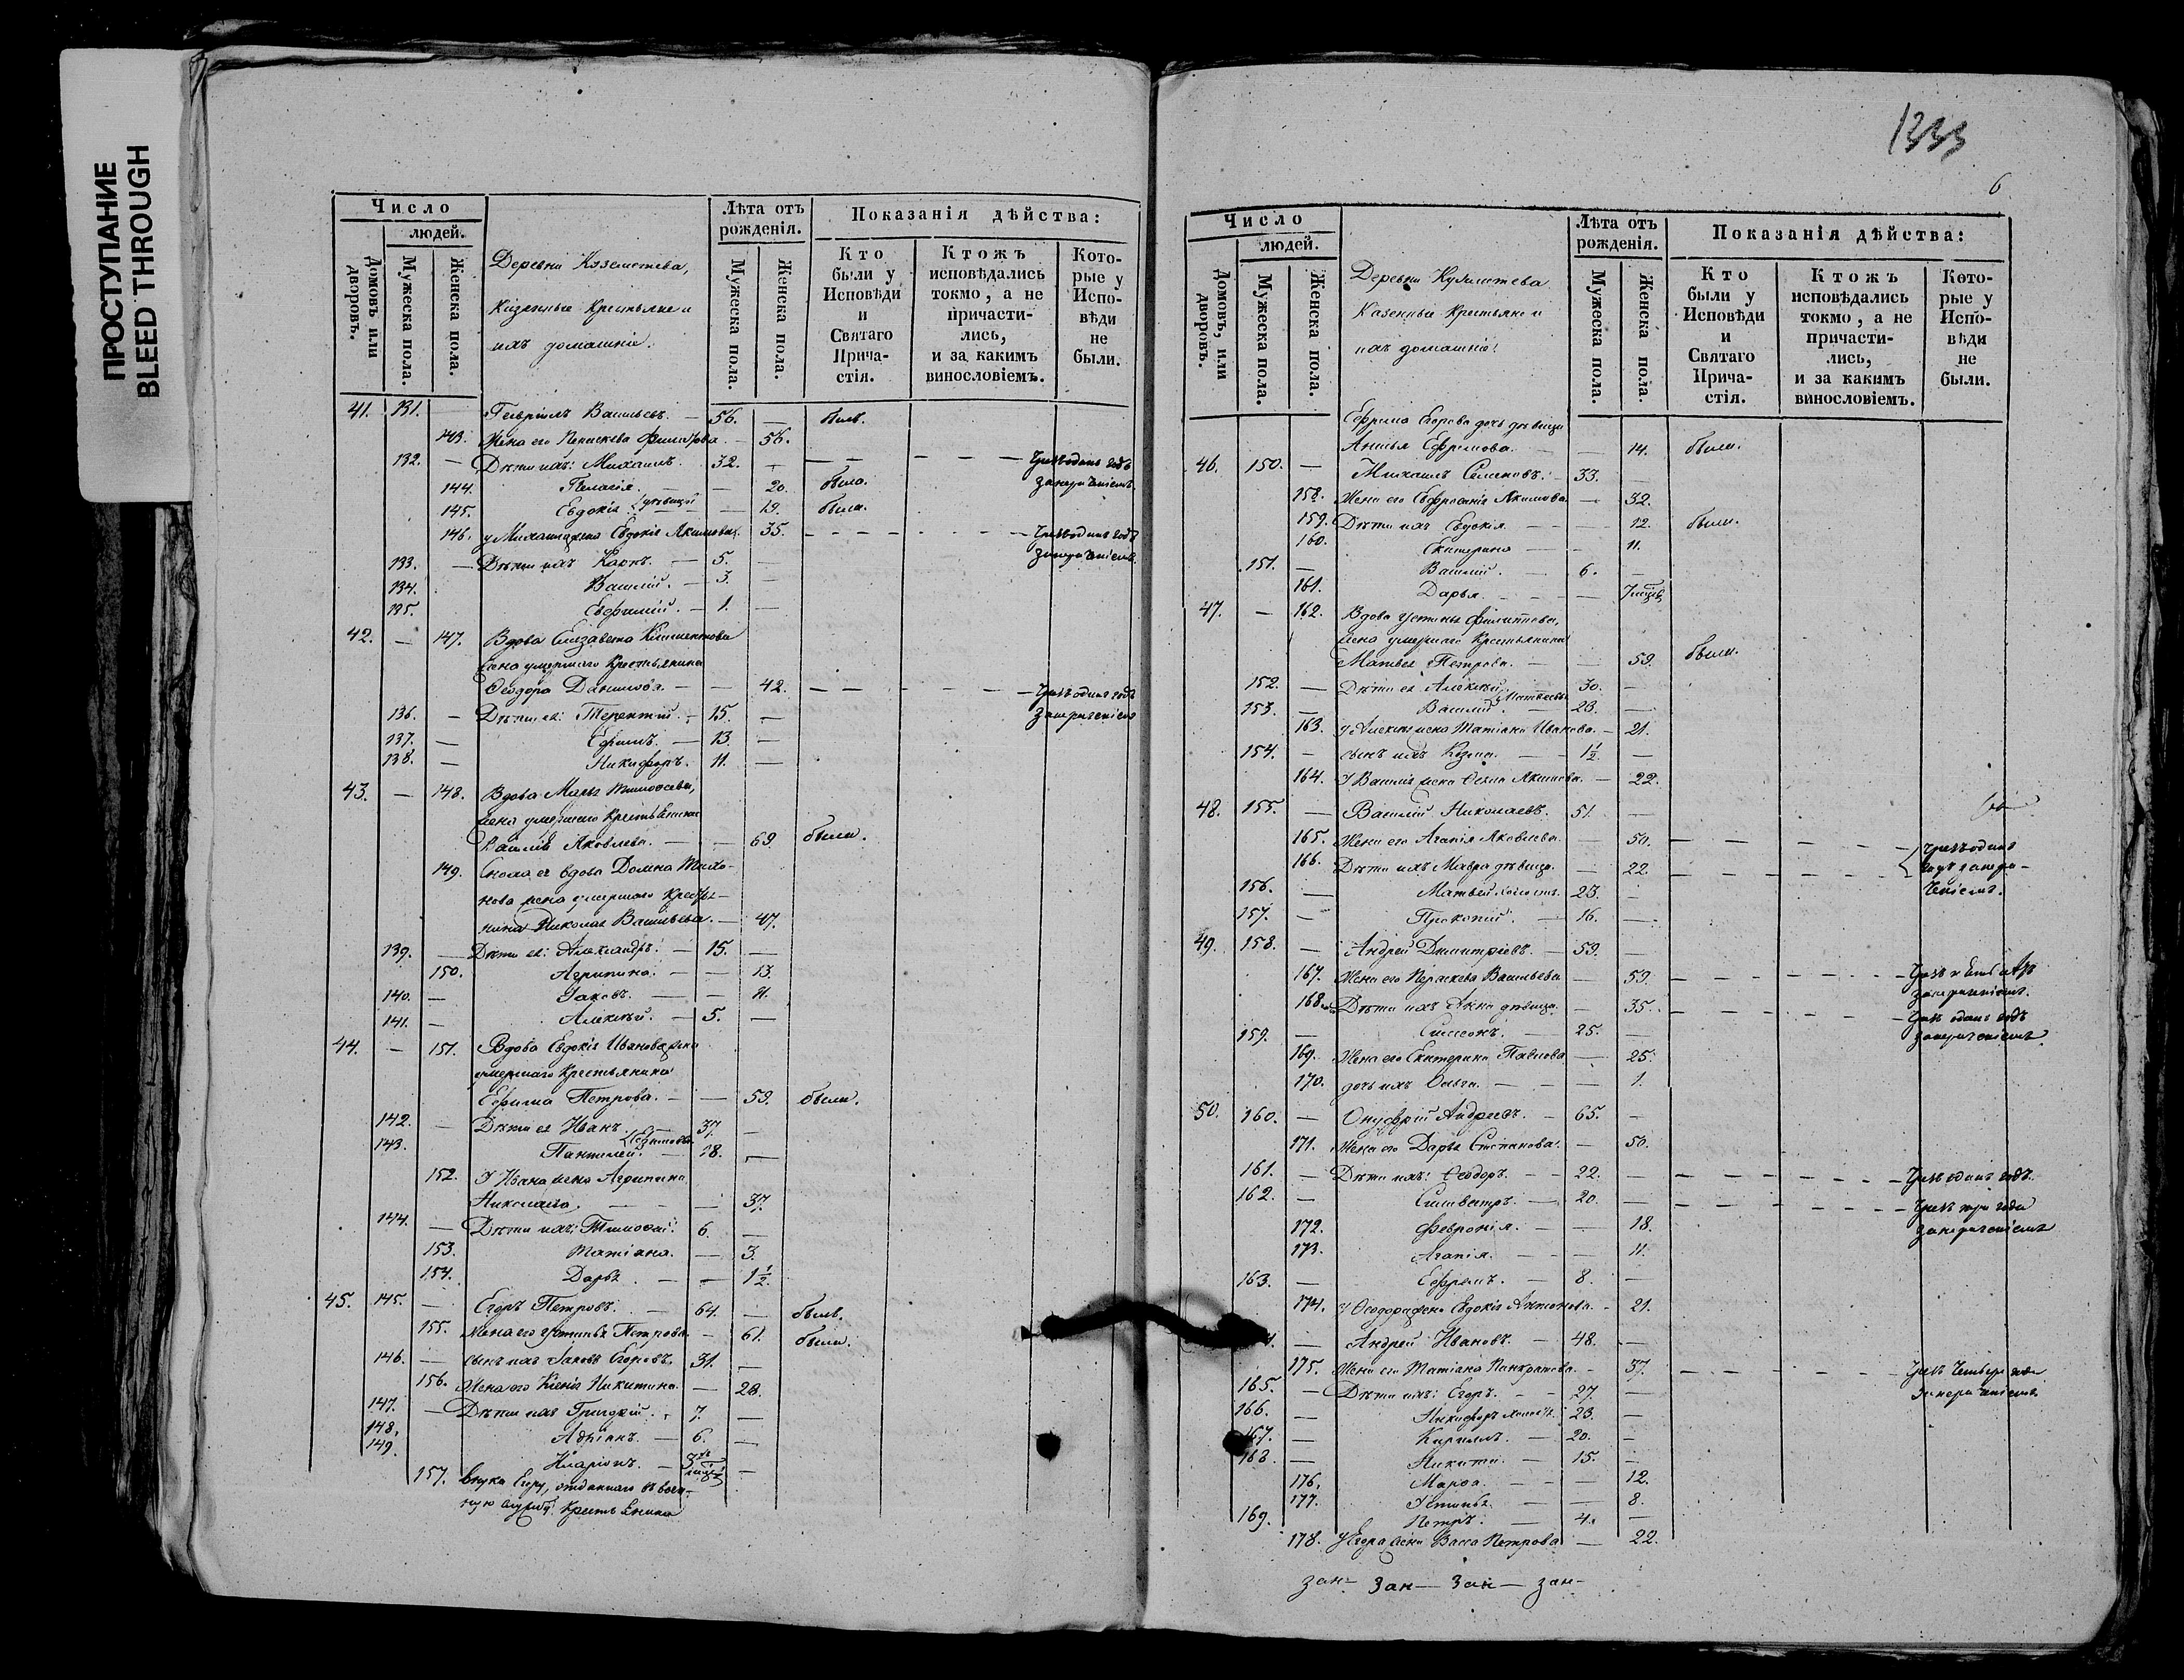 ПРОСТУПАНИЕ
BLEED THROUGH
Число
людей.
Домовъ или дворовъ.
Мужеска пола.
Женска пола.
Деревни
Казенные Крестьяне и
ихъ домашніе.
Лѣта отъ рожденія.
Мужеска пола.
Женска пола.
Показанія дѣйства:
Кто были у Исповѣди и Святаго Прича-стія.
Ктожъ исповѣдались токмо, а не причасти-лись, и за какимъ винословіемъ.
Кото-рые у Испо-вѣди не были.
41. 131. — Гавріилъ Васильевъ. — 56. — былъ.
143. Жена его Параскева — 56.
132. — Дѣти ихъ: Михаилъ. 32. — — — — чрезъ одинъ годъ
144. Пелагія — 20. была. занераченіемъ
145. Евдокія дѣвицы — 19. была.
146. у Михаила жена Евдокія Акимова. 35. — — — чрезъ одинъ годъ
133. — Дѣти ихъ Карпъ. — 5. — занераченіемъ
134. Василій. — 3. —
135. Евфимій. — 1. —
42. — 147. Вдова Елизавета Климентова
жена умершаго Крестьянина
Ѳеодора Данилова. — — 42. — — — чрезъ одинъ годъ
136. — Дѣти ея: Терентій. — 15. — занераченіемъ
137. — Ефимъ. — 13. —
138. — Никифоръ. 11. —
43. — 148. Вдова Марья Тимоѳеева,
жена умершаго Крестьянина
Василія Яковлева. — — 69. была.
149. Сноха ея вдова Домна Тихо-
нова жена умершаго Крестья-
нина Николая Васильева. — 47.
139. — Дѣти ея: Александръ. — 15. —
150. Агрипина. — — 13.
140. — Іаковъ. — — 11.
141. — Алексѣй. — 5. —
44. — 151. Вдова Евдокія Иванова жена
умершаго Крестьянина
Ефима Петрова. — — 59. была.
142. — Дѣти ея Иванъ 37. —
143. Пантелей. Ефимовы — 28. —
152. У Ивана жена Агрипина
— — 37.
144. — Дѣти ихъ: Тимоѳей. 6. —
153. Татіана. — 3.
154. Дарья. — — 1½.
45. 145. — Егоръ Петровъ. — 64. — былъ.
155. Жена его Устинья Петрова — 61. была.
146. — сынъ ихъ Іаковъ Егоровъ. 31. —
156. Жена его Ксенія Никитина. — 28.
147. — Дѣти ихъ Григорій. 7. —
148. Адріанъ. — 6. —
149. Иларіонъ. — 3 —
157. внука Егору, отданнаго въ воен-
ную службу Крестьянина
1333
6
Число
людей.
Домовъ, или дворовъ.
Мужеска пола.
Женска пола.
Деревни
Казенные Крестьяне и
ихъ домашніе.
Лѣта отъ рожденія.
Мужеска пола.
Женска пола.
Показанія дѣйства:
Кто были у Исповѣди и Святаго Прича-стія.
Ктожъ исповѣдались токмо, а не причасти-лись, и за какимъ винословіемъ.
Кото-рые у Испо-вѣди не были.
Ефрема Егорова дочь дѣвица
Ефремова. — — 14. была.
46. 150. — Михаилъ Семеновъ. — 33. —
158. Жена его Евфросинія Акимова — 32.
159. Дѣти ихъ Евдокія. — — 12. была.
160. Екатерина — — 11.
151. — Василій. — 6. —
161. Дарья. — — —
47. — 162. Вдова Устинья Филиппова,
жена умершаго Крестьянина
Матвея Петрова. — — 59. была.
152. — Дѣти ея Алексѣй 30. —
153. — Василій Матвеевы. — 23. —
163. у Алексѣя жена Татіана Иванова. — 21.
154. — сынъ ихъ Козма. — 1½. —
164. У Василія жена Акимова. — 22.
48. 155. — Василій Николаевъ. 51. —
165. Жена его Агапія Яковлева. — 50. — — — чрезъ одинъ
166. Дѣти ихъ Мавра дѣвица. — 22. — — — годъ занера-
156. — Матвей холостъ. 23. — ченіемъ.
157. — Прокопій. — 16. —
49. 158. — Андрей Димитріевъ. — 59. —
167. Жена его Параскева Васильева — 59. — — —
занераченіемъ.
168. Дѣти ихъ Анна дѣвица. — 35. — — — чрезъ одинъ годъ
159. — Симеонъ. 25. — занераченіемъ
169. Жена его Екатерина Павлова — 25.
170. дочь ихъ Ольга. — — — 1.
50. 160. — Онуфрій Андреевъ. — 65. —
171. Жена его Дарья Степанова. — 50.
161. — Дѣти ихъ: Ѳеодоръ. — — 22. — — — чрезъ одинъ годъ.
162. — Сильвестръ. — 20. — — — чрезъ три года
172. Февронія. — — 18. занераченіемъ
173. Агапія. — — 11.
163. — Ефремъ. — 8. —
174. у Ѳеодора жена Евдокія Антонова. — 21.
— Андрей Ивановъ. — 48. —
175. Жена его Татіана Панкратова. — 57. — — — чрезъ четыре года
165. — Дѣти ихъ: Егоръ. — — 27. — занераченіемъ
166. — Никифоръ холостъ. 23. —
167. — Кирилъ. — 20. —
168. — Никита. — 15. —
176. Марѳа. — — — 12.
177. Устинья. — — 8.
169. Петръ. — 4. —
178. у Егора жена Васса Петрова — 22.
зан— зан— зан— зан—